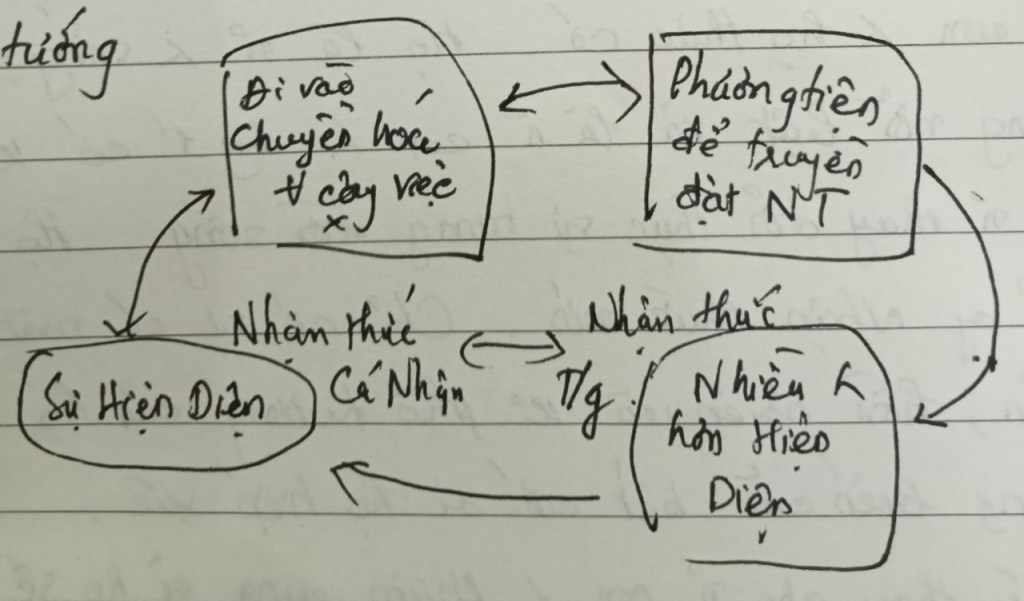 tướng
Đi vào
chuyển hoá
∀ công việc
Phương tiện
để truyền
đạt NT
Nhận thức
Cá Nhận
Nhận thức
T/g.
Sự Hiện Diện
Nhiều L
hơn Hiện
Diện